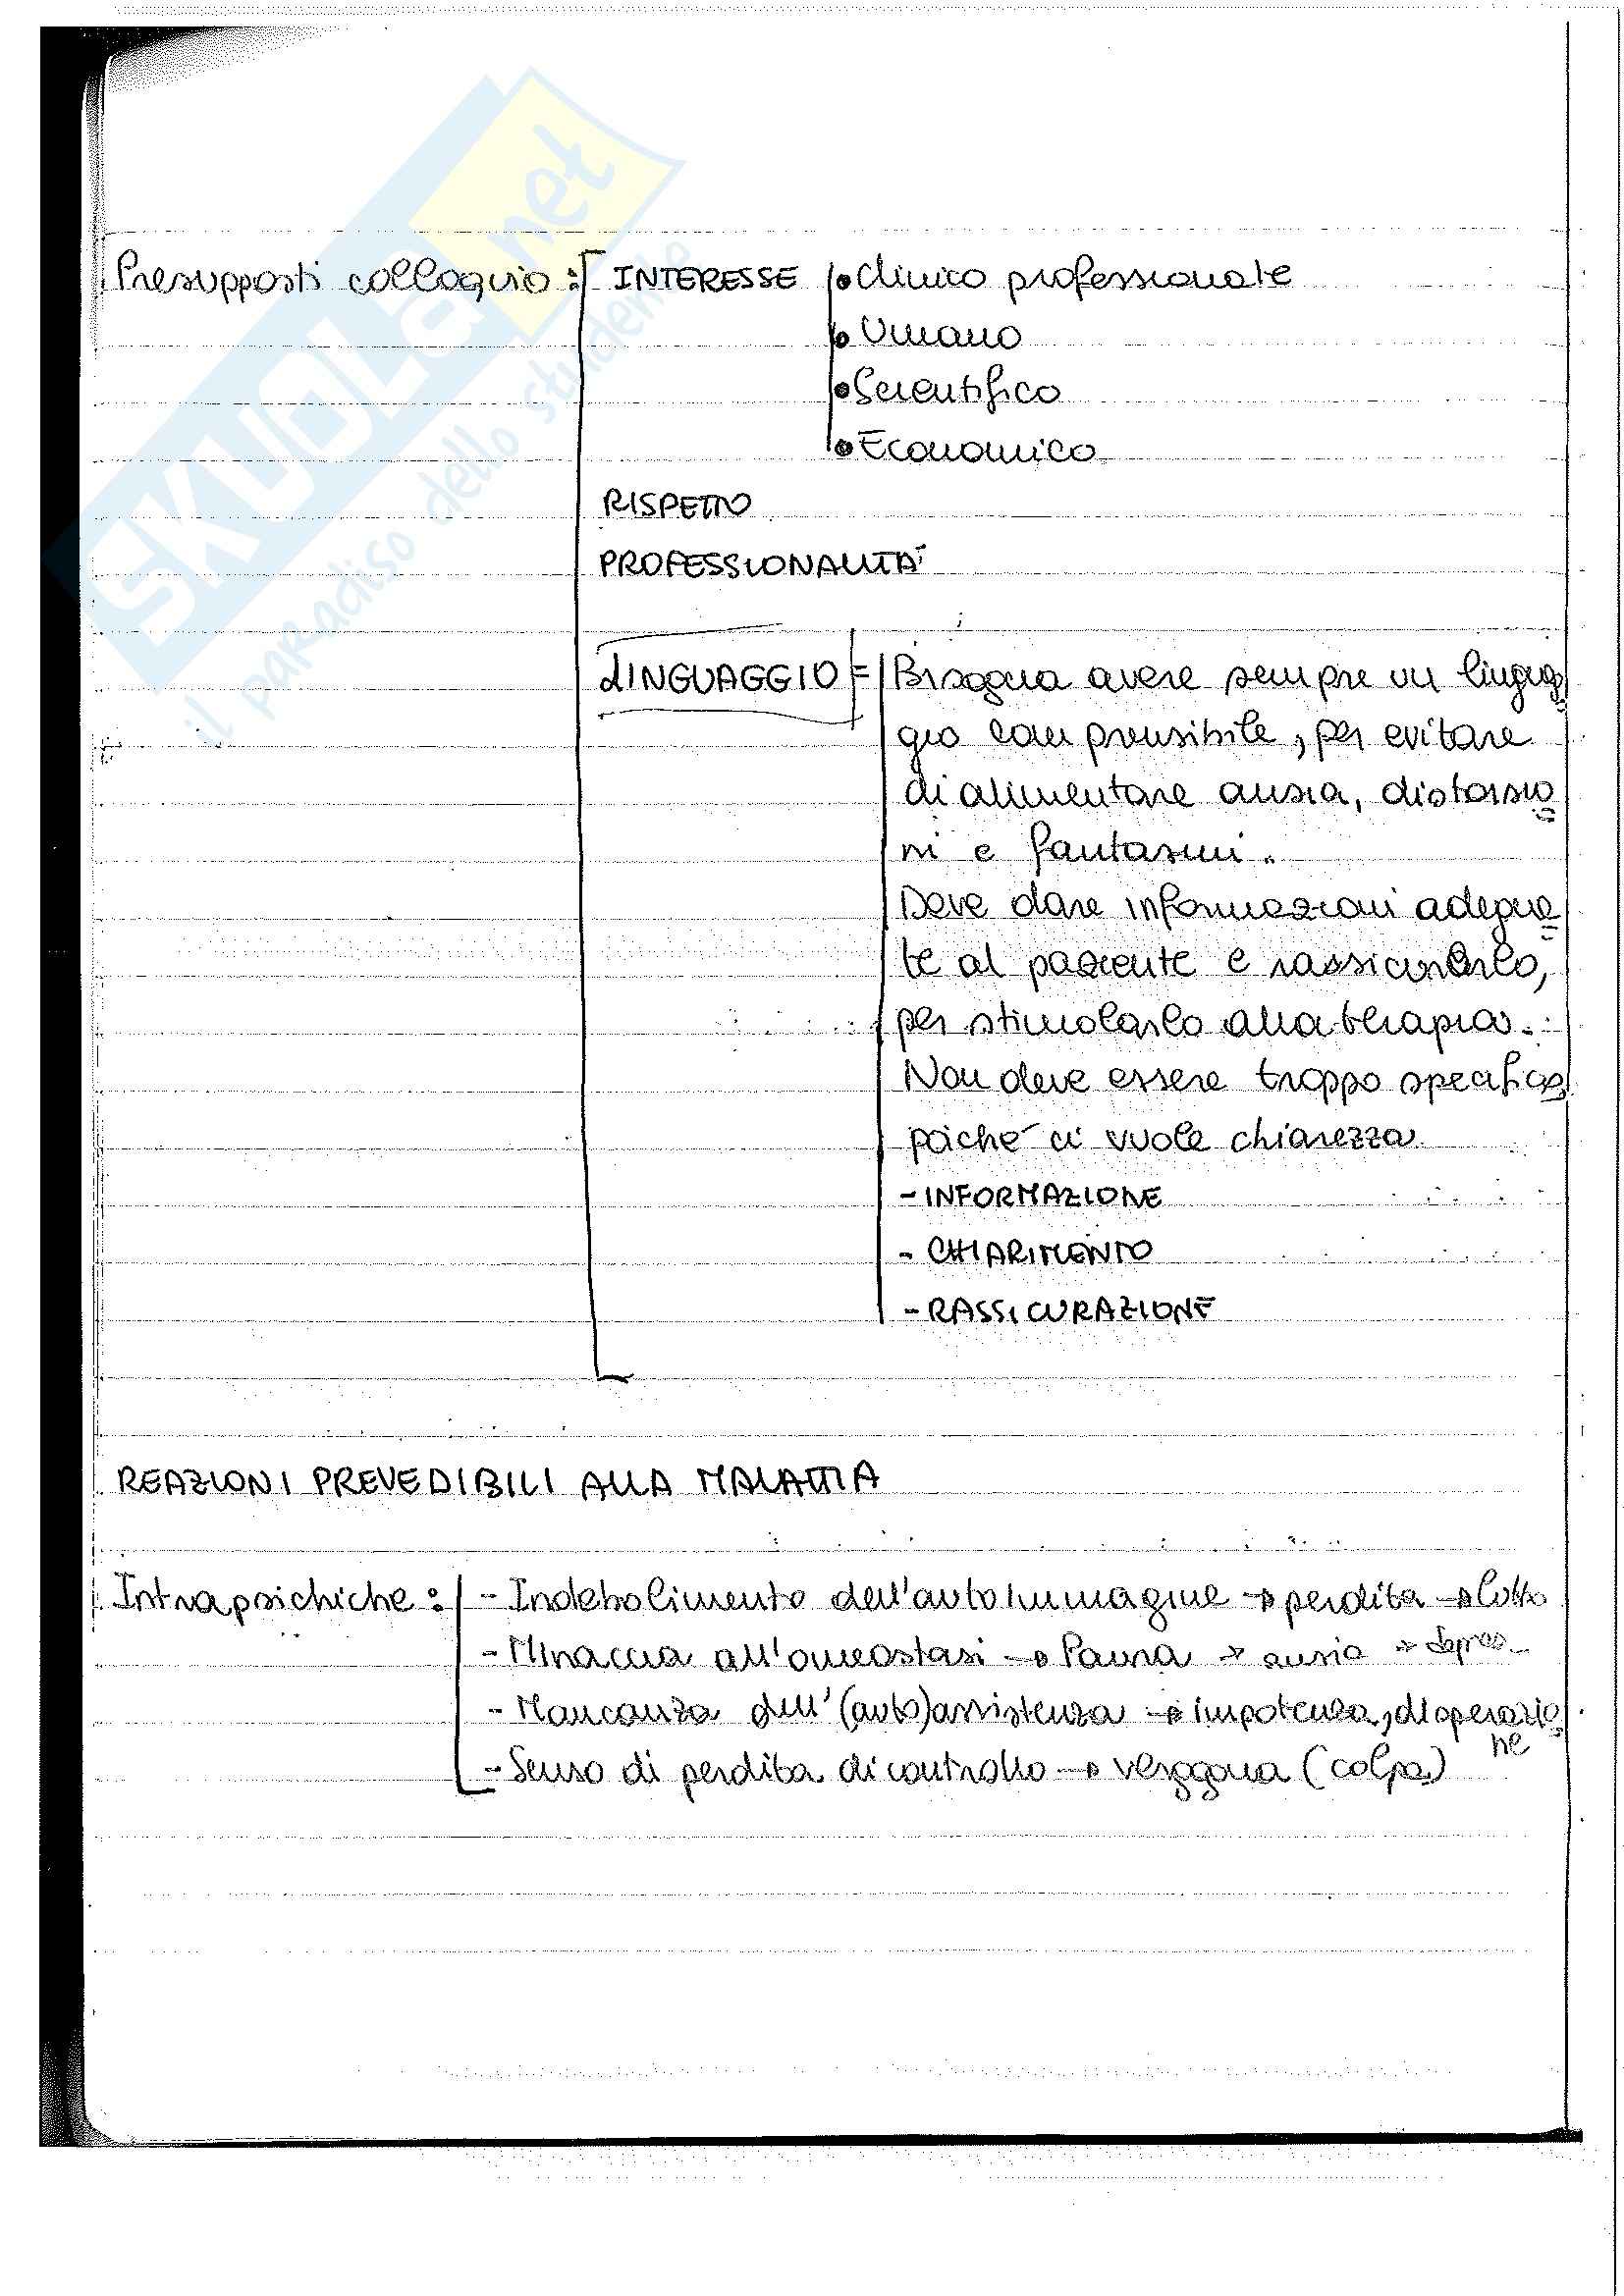 SKUOLA.net
il paradiso dello studente
Presupposti colloquio: INTERESSE • Clinico professionale
• Umano
• Scientifico
• Economico
RISPETTO
PROFESSIONALITA'
LINGUAGGIO = Bisogna avere sempre un linguag
gio comprensibile, per evitare
di alimentare ansia, distorsio
ni e fantasmi.
Deve dare informazioni adegua
te al paziente e rassicurarlo,
per stimolarlo alla terapia.
Non deve essere troppo specifico,
poiché ci vuole chiarezza
- INFORMAZIONE
- CHIARIMENTO
- RASSICURAZIONE
REAZIONI PREVEDIBILI ALLA MALATTIA
Intrapsichiche: - Indebolimento dell'autoimmagine → perdita → lutto
- Minaccia all'omeostasi → Paura → ansia → depres.
- Mancanza dell'(auto)assistenza → impotenza, disperazio
ne
- Senso di perdita di controllo → vergogna (colpa)